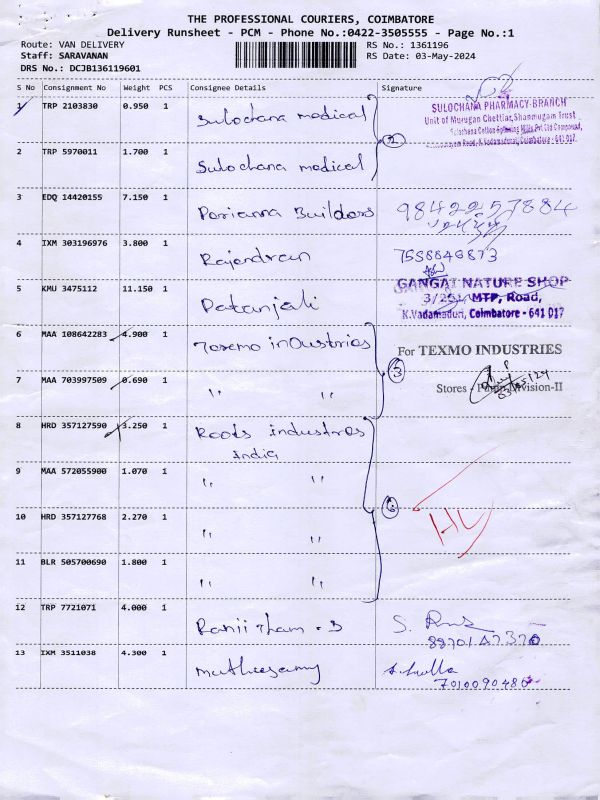 THE PROFESSIONAL COURIERS, COIMBATORE
Delivery Runsheet - PCM - Phone No.:0422-3505555 - Page No.:1
Route: VAN DELIVERY
RS No.: 1361196
Staff: SARAVANAN
RS Date: 03-May-2024
DRS No.: DCJB136119601
S No Consignment No Weight PCS Consignee Details Signature
1 TRP 2103830 0.950 1 Sulochana medical
SULOCHANA PHARMACY-BRANCH
Unit of Murugan Chettiar, Shanmugam Trust
Sulochana Cotton Spinning Mills Pvt Ltd Compound,
Road, K.Vadamadurai, Coimbatore - 641 017.
2
2 TRP 5970011 1.700 1 Sulochana medical
3 EDQ 14420155 7.150 1 Perianna Builders 9842257884
4 IXM 303196976 3.800 1 Rajendran 7558846873
5 KMU 3475112 11.150 1 Patanjali
GANGAI NATURE SHOP
3/251, MTP, Road,
K.Vadamaduri, Coimbatore - 641 017
6 MAA 108642283 4.900 1 Texmo industries
For TEXMO INDUSTRIES
7 MAA 703997509 0.690 1 " "
Stores - Pump Division-II
03/05/24
8 HRD 357127590 3.250 1 Roots industries
India
9 MAA 572055900 1.070 1 " "
10 HRD 357127768 2.270 1 " "
11 BLR 505700690 1.800 1 " "
12 TRP 7721071 4.000 1
13 IXM 3511038 4.300 1 Muthusamy
7010090486